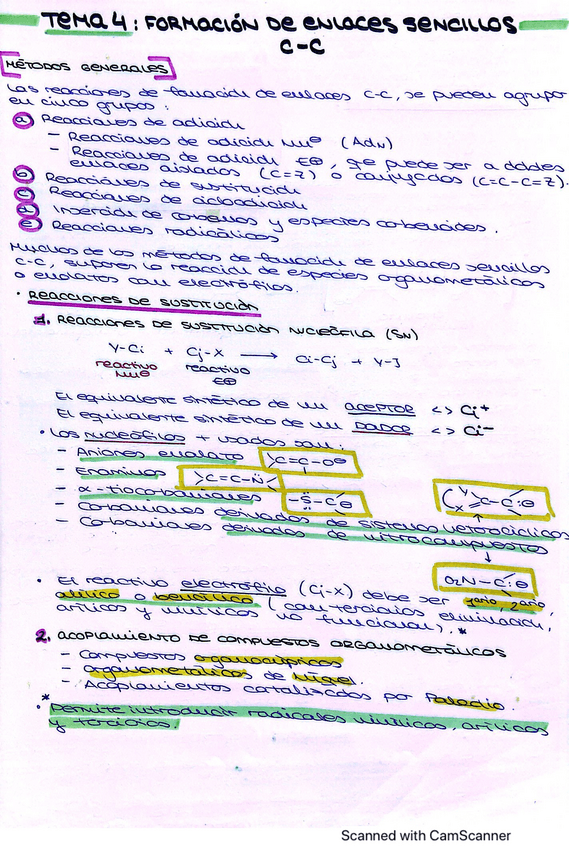 TEMA 4: FORMACIÓN DE ENLACES SENCILLOS
C-C
MÉTODOS GENERALES
Las reacciones de formación de enlaces C-C, se pueden agrupar
en cinco grupos:
a) Reacciones de adición
- Reacciones de adición Nu⊖ (AdN)
- Reacciones de adición E⊕, que puede ser a dobles
enlaces aislados (C=Z) o conjugados (C=C-C=Z).
b) Reacciones de sustitución
c) Reacciones de cicloadición
d) Inserción de carbenos y especies carbenoides.
e) Reacciones radicálicas
Muchos de los métodos de formación de enlaces sencillos
C-C, suponen la reacción de especies organometálicas
o enolatos con electrófilos.
· REACCIONES DE SUSTITUCIÓN
1. REACCIONES DE SUSTITUCIÓN NUCLEÓFILA (SN)
Y-Ci + Cj-X ⟶ Ci-Cj + Y-J
reactivo reactivo
Nu⊖ E⊕
El equivalente sintético de un ACEPTOR <> Ci+
El equivalente sintético de un DADOR <> Ci-
· Los nucleófilos + usados son:
- Aniones enolato >C=C-O⊖
- Enaminas >C=C-N<
- α-tiocarbaniones -S-C⊖
- Carbaniones derivados de sistemas heterocíclicos Y X C-C:⊖
- Carbaniones derivados de nitrocompuestos
O2N-C:⊖
· El reactivo electrófilo (Cj-X) debe ser 1ario, 2ario,
alílico o bencílico (con terciarios eliminación,
arílicos y vinílicos no funcionan). *
2. ACOPLAMIENTO DE COMPUESTOS ORGANOMETÁLICOS
- Compuestos organocúpricos
- Organometálicos de Níquel.
- Acoplamientos catalizados por Paladio.
* · Permite introducir radicales vinílicos, arílicos
y terciarios.
Scanned with CamScanner